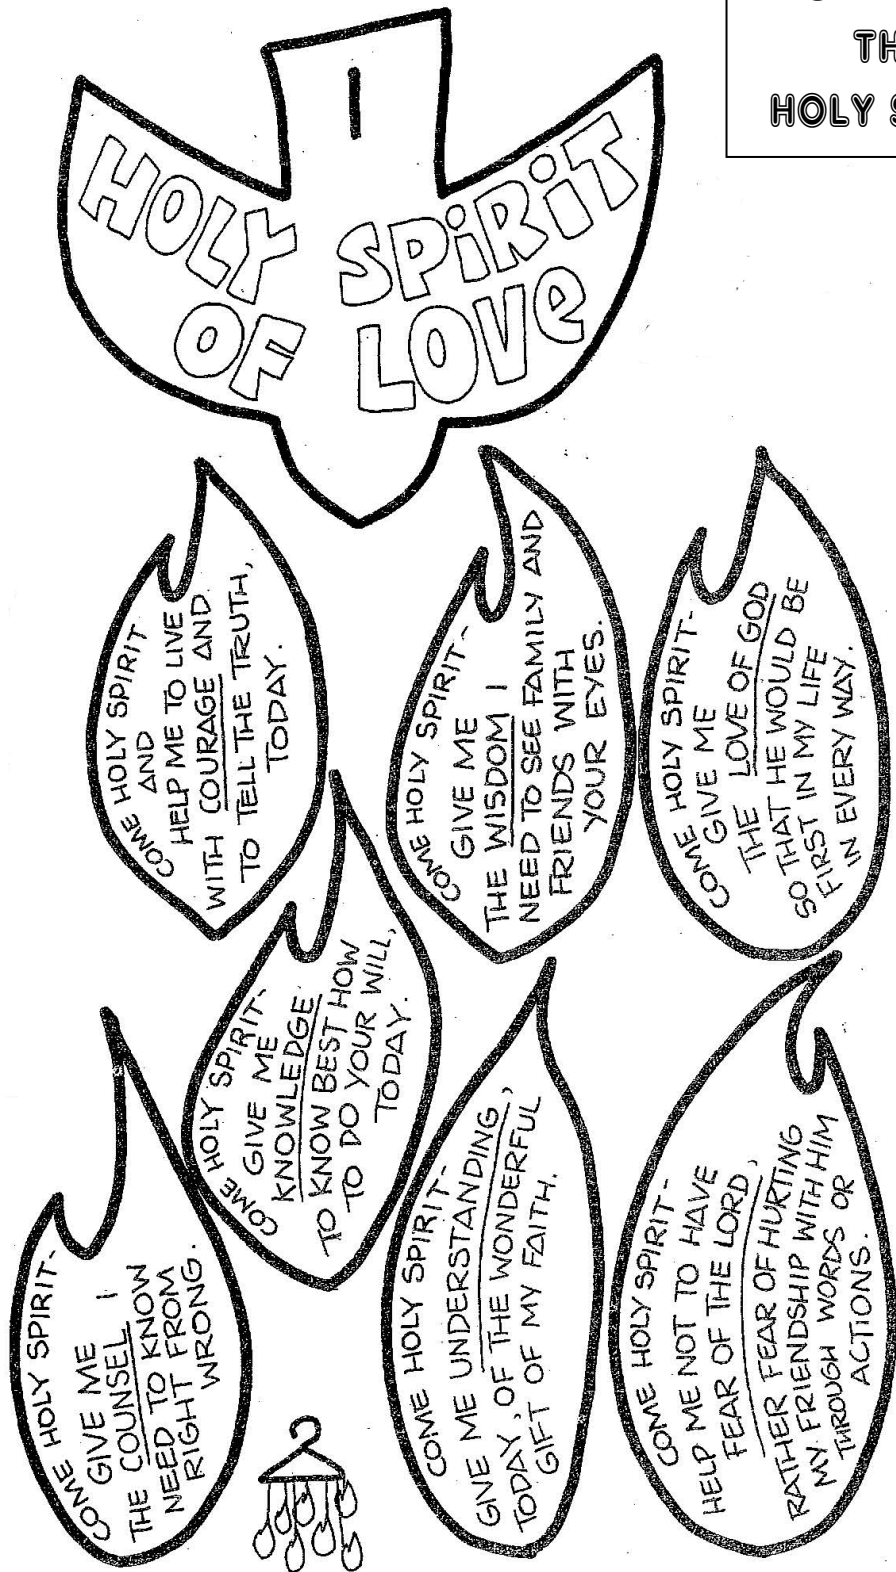 TH
HOLY S
I
HOLY SPIRIT
OF LOVE
COME HOLY SPIRIT
AND
HELP ME TO LIVE
WITH COURAGE AND
TO TELL THE TRUTH,
TODAY.
COME HOLY SPIRIT-
GIVE ME
THE WISDOM I
NEED TO SEE FAMILY AND
FRIENDS WITH
YOUR EYES.
COME HOLY SPIRIT-
GIVE ME
THE LOVE OF GOD
SO THAT HE WOULD BE
FIRST IN MY LIFE
IN EVERY WAY.
COME HOLY SPIRIT-
GIVE ME
KNOWLEDGE
TO KNOW BEST HOW
TO DO YOUR WILL,
TODAY.
COME HOLY SPIRIT-
GIVE ME
THE COUNSEL I
NEED TO KNOW
RIGHT FROM
WRONG.
COME HOLY SPIRIT-
GIVE ME UNDERSTANDING,
TODAY, OF THE WONDERFUL
GIFT OF MY FAITH.
COME HOLY SPIRIT-
HELP ME NOT TO HAVE
FEAR OF THE LORD,
RATHER FEAR OF HURTING
MY FRIENDSHIP WITH HIM
THROUGH WORDS OR
ACTIONS.